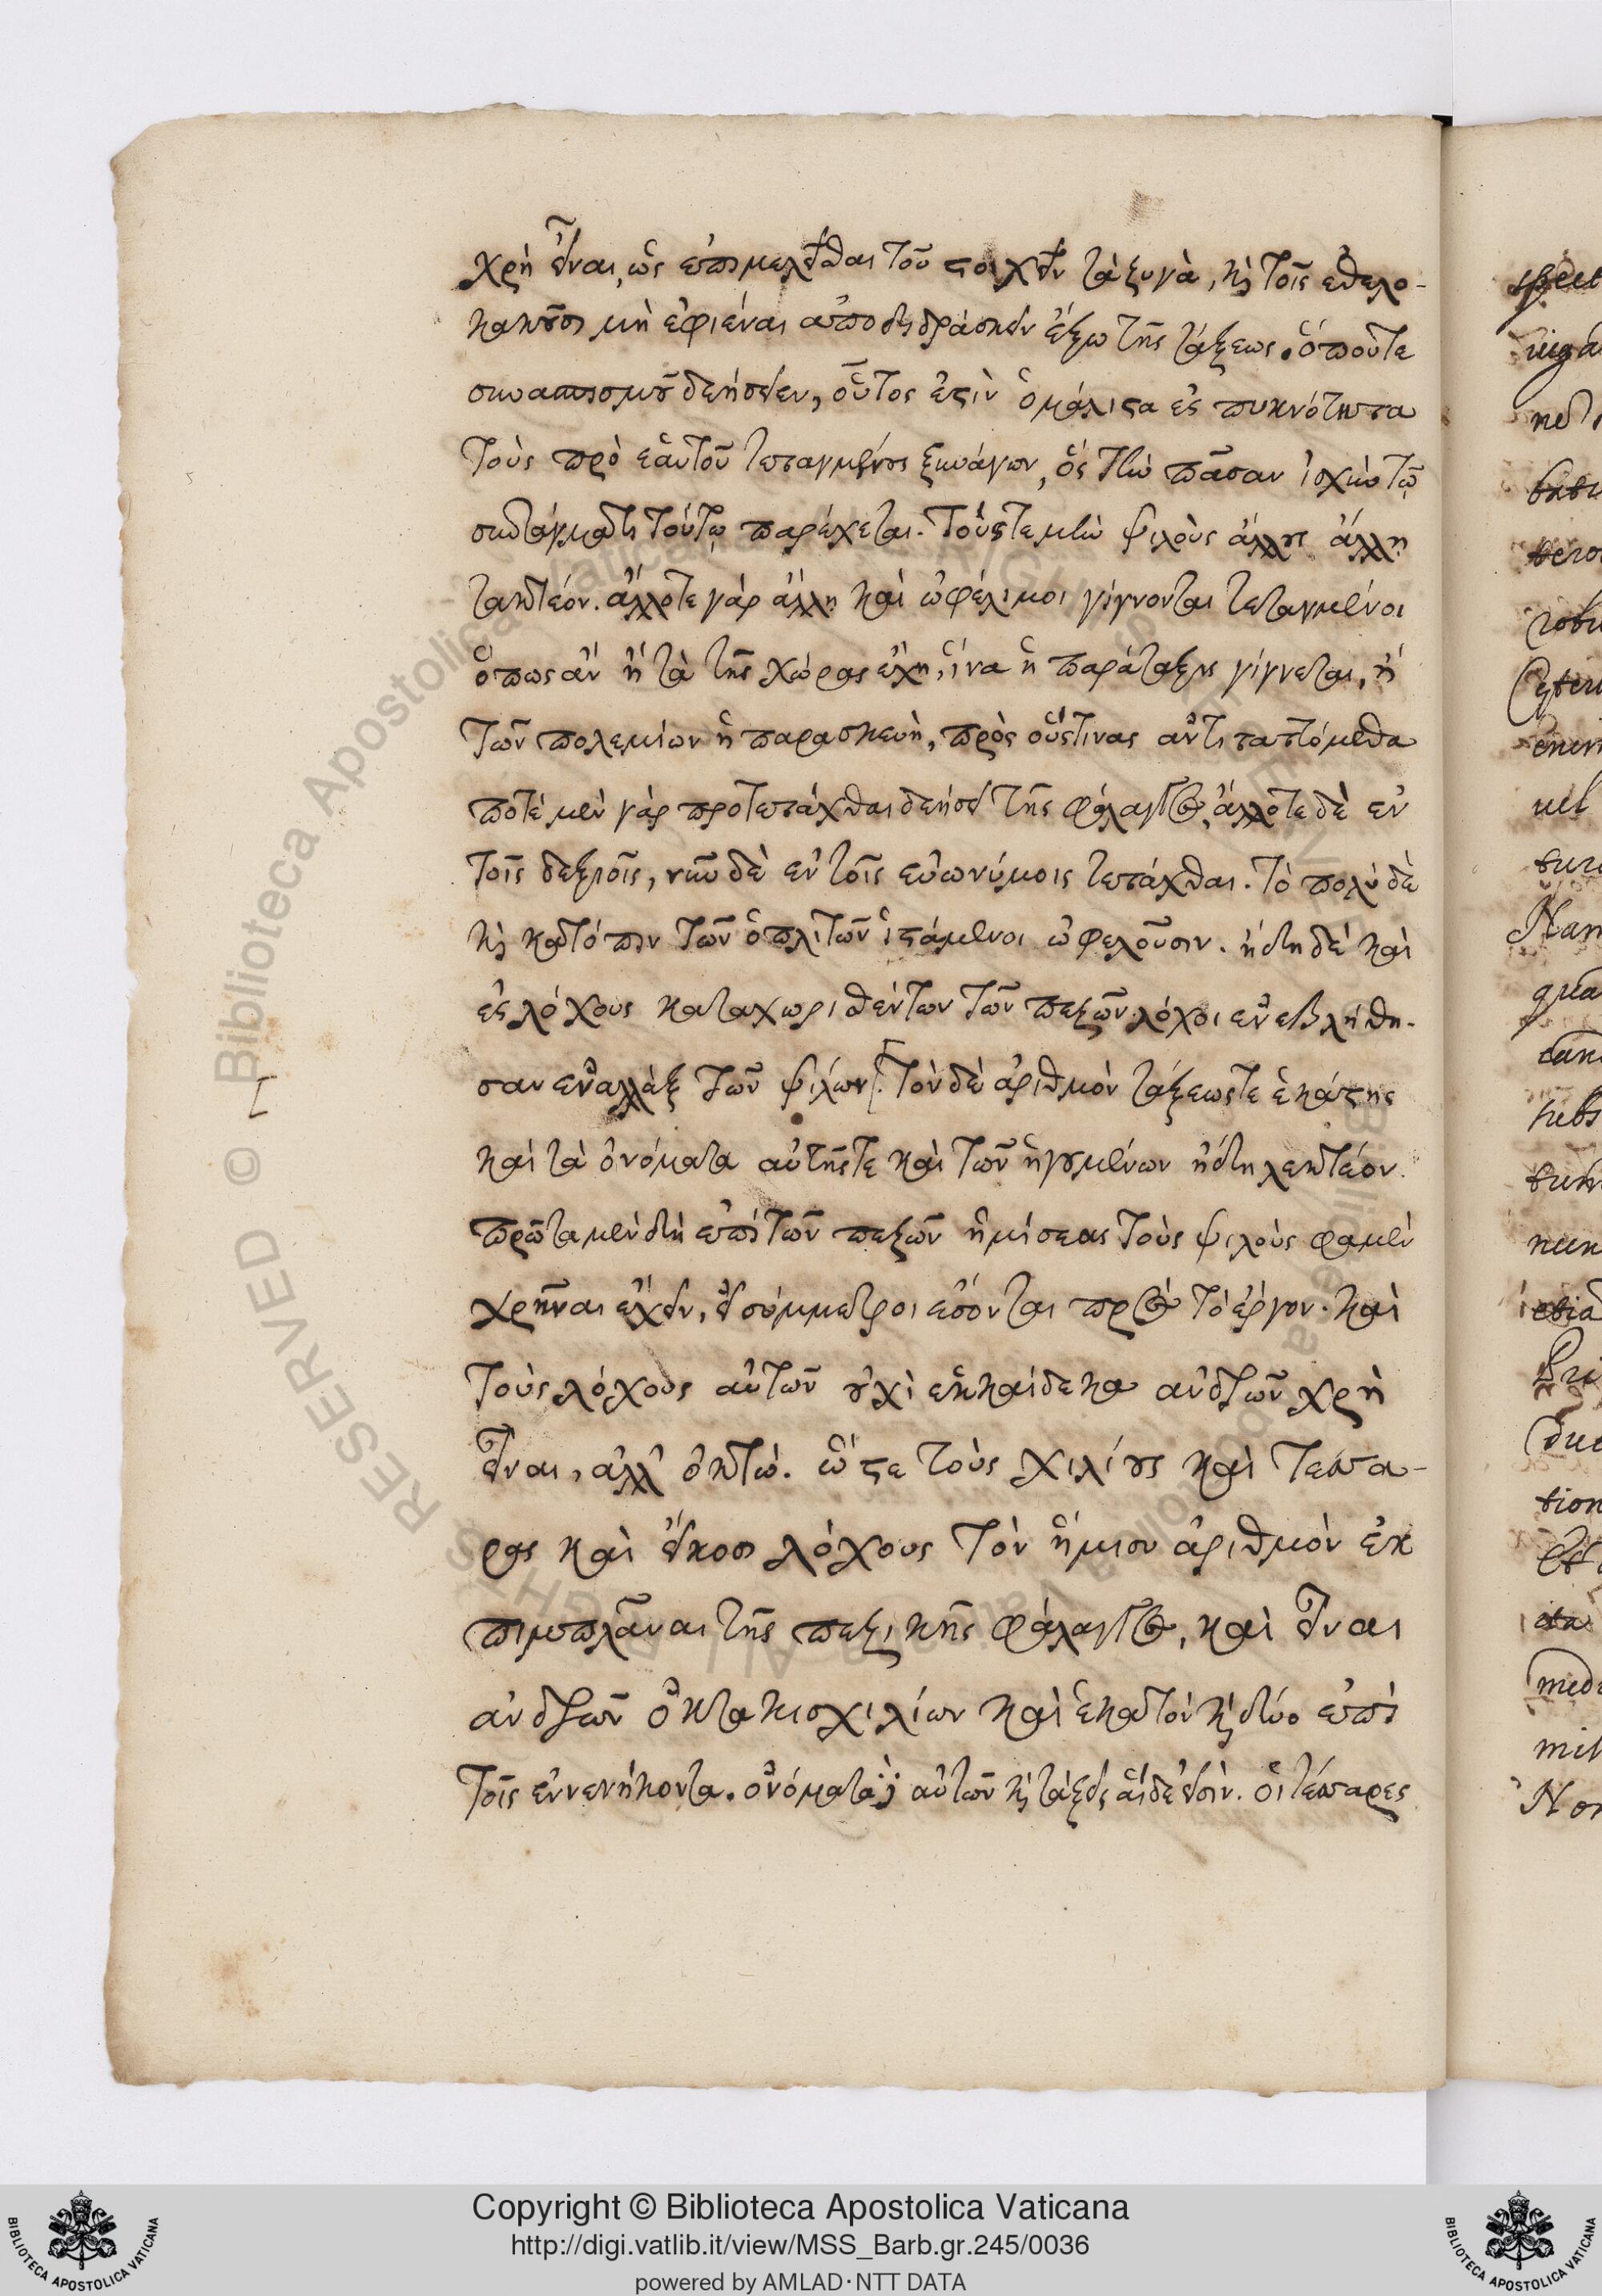 χρὴ εἶναι, ὡς ἐπιμελεῖσθαι τοῦ στοιχεῖν τὰ ζυγὰ, καὶ τοῖς ἐθελο-
κακοῦσι μὴ ἐφιέναι ἀποδιδράσκειν ἔξω τῆς τάξεως. ὁπότε
συνασπισμοῦ δεήσειεν, οὗτος ἐστὶν ὁ μάλιστα ἐς πυκνότητα
τοὺς πρὸ ἑαυτοῦ τεταγμένους ξυνάγων, ὃς τὴν πᾶσαν ἰσχὺν τῷ
συντάγματι τούτῳ παρέχεται. τούς τε μὴν ψιλοὺς ἄλλους ἄλλῃ
τακτέον. ἄλλοτε γὰρ ἄλλῃ καὶ ὠφέλιμοι γίγνονται τεταγμένοι
ὅπως ἂν ἢ τὰ τῆς χώρας ἔχῃ, ἵνα ἡ παράταξις γίγνεται, ἢ
τῶν πολεμίων ἡ παρασκευὴ, πρὸς οὕστινας ἀντιταττόμεθα
ποτὲ μὲν γὰρ προτετάχθαι δεήσει τῆς φάλαγγος, ἄλλοτε δὲ ἐν
τοῖς δεξιοῖς, νῦν δὲ ἐν τοῖς εὐωνύμοις τετάχθαι. τὸ πολὺ δὲ
καὶ κατόπιν τῶν ὁπλιτῶν ἱστάμενοι ὠφελοῦσιν. ἤδη δὲ καὶ
ἐς λόχους καταχωριθέντων τῶν πεζῶν λόχοι ἐνεβλήθη-
σαν ἐναλλὰξ τῶν ψιλῶν. [τὸν δὲ ἀριθμὸν τάξεώς τε ἑκάστης
καὶ τὰ ὀνόματα αὐτῆς τε καὶ τῶν ἡγουμένων ἤδη λεκτέον.
πρῶτα μὲν δὴ ἐπὶ τῶν πεζῶν ἡμίσεας τοὺς ψιλοὺς φαμὲν
χρῆναι ἔχειν, εἰ σύμμετροι ἔσονται πρὸς τὸ ἔργον. καὶ
τοὺς λόχους αὐτῶν οὐχὶ ἑκκαίδεκα ἀνδρῶν χρὴ
εἶναι, ἀλλ' ὀκτώ. ὥστε τοὺς χιλίους καὶ τέσσα-
ρας καὶ εἴκοσι λόχους τὸν ἥμισυ ἀριθμὸν ἐκ
πιμπλᾶναι τῆς πεζικῆς φάλαγγος, καὶ εἶναι
ἀνδρῶν ὀκτακισχιλίων καὶ ἑκατὸν καὶ δύο ἐπὶ
τοῖς ἐννενήκοντα. ὀνόματα δὲ αὐτῶν καὶ τάξεις αἵδε εἰσὶν. οἱ τέσσαρες
[
Copyright © Biblioteca Apostolica Vaticana
http://digi.vatlib.it/view/MSS_Barb.gr.245/0036
powered by AMLAD·NTT DATA